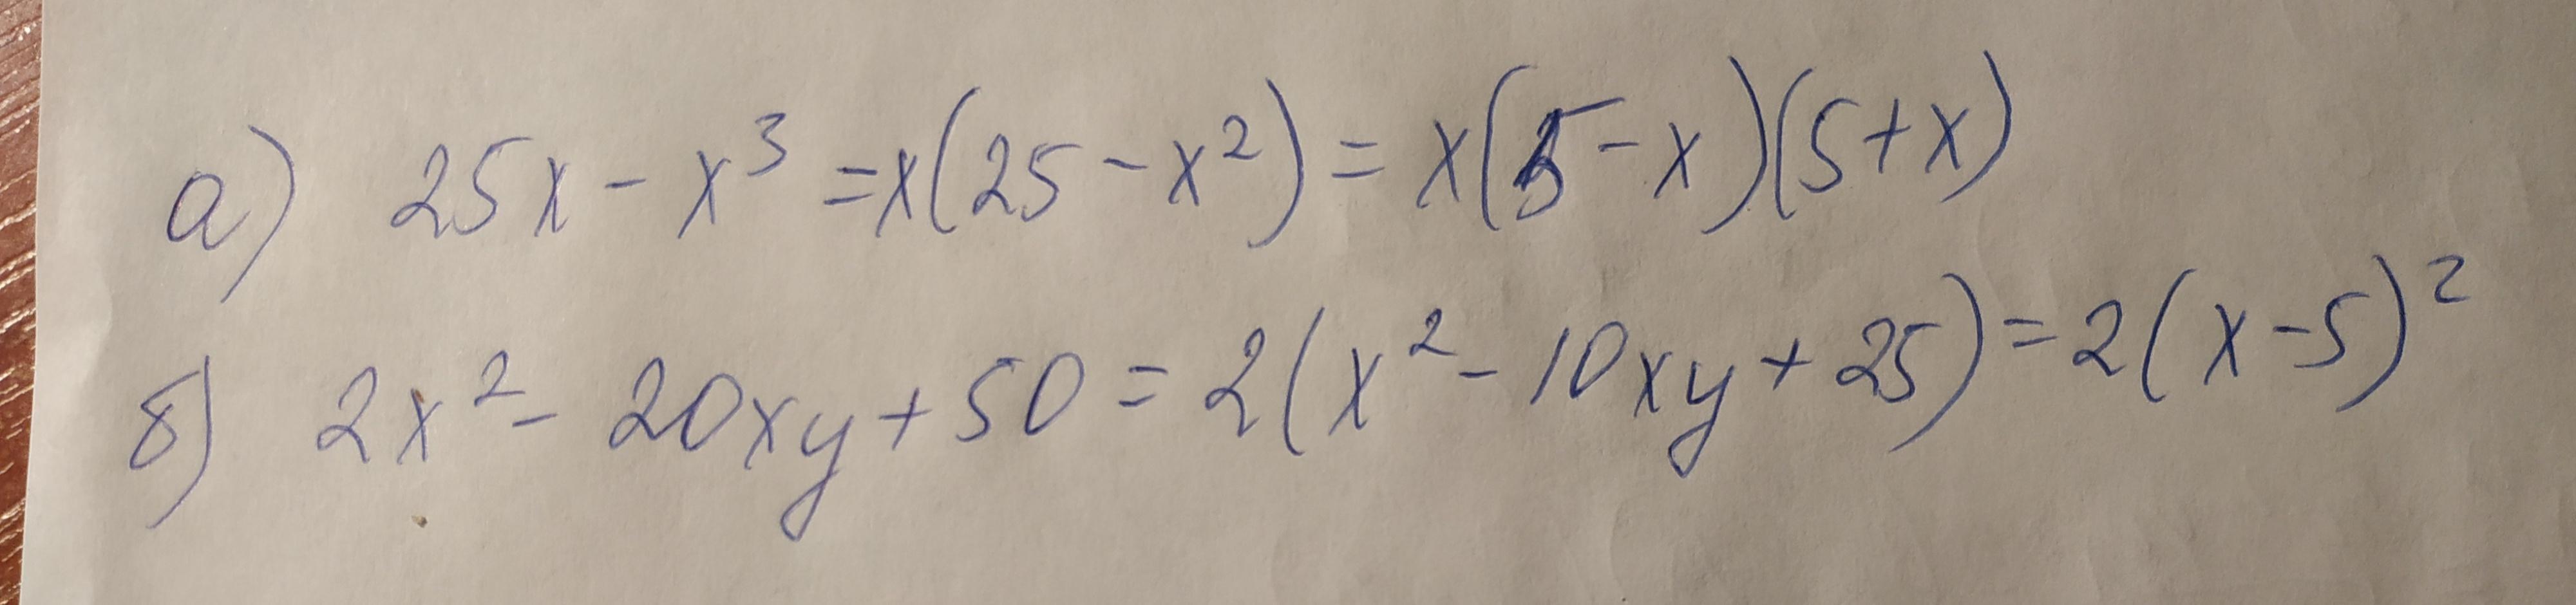 а) 25x - x³ = x(25 - x²) = x(5 - x)(5 + x)
б) 2x² - 20xy + 50 = 2(x² - 10xy + 25) = 2(x - 5)²